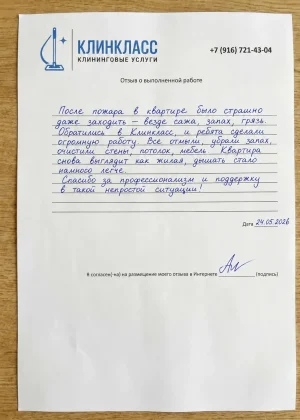 КЛИНКЛАСС
КЛИНИНГОВЫЕ УСЛУГИ
+7 (916) 721-43-04
Отзыв о выполненной работе
После пожара в квартире было страшно
даже заходить – везде сажа, запах, грязь.
Обратились в Клинкласс, и ребята сделали
огромную работу. Все отмыли, убрали запах,
очистили стены, потолок, мебель. Квартира
снова выглядит как жилая, дышать стало
намного легче.
Спасибо за профессионализм и поддержку
в такой непростой ситуации!
Дата 24.05.2026
Я согласен(-на) на размещения моего отзыва в Интернете (подпись)